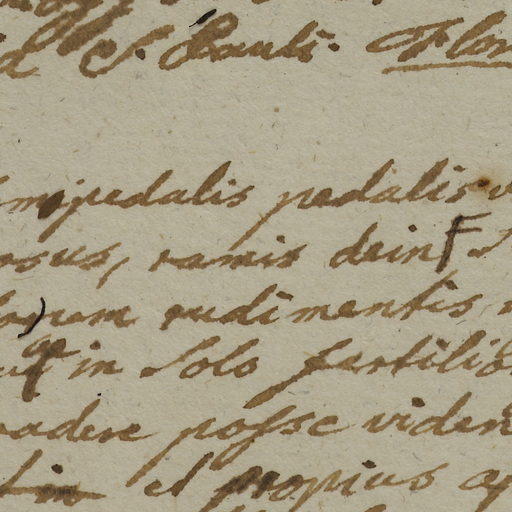 S. Pauli. Flor
mipedalis pedalis
rsus, ramis dein
rudimentis
in solo fertilio
vadere posse viden
et propius ap